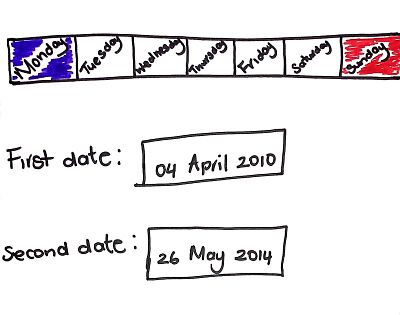 Monday Tuesday Wednesday Thursday Friday Saturday Sunday
First date: 04 April 2010
Second date: 26 May 2014